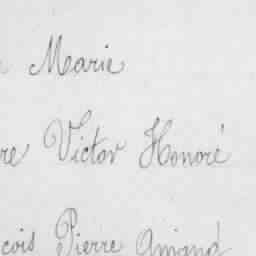 Marie
re Victor Honoré
cois Pierre Amand